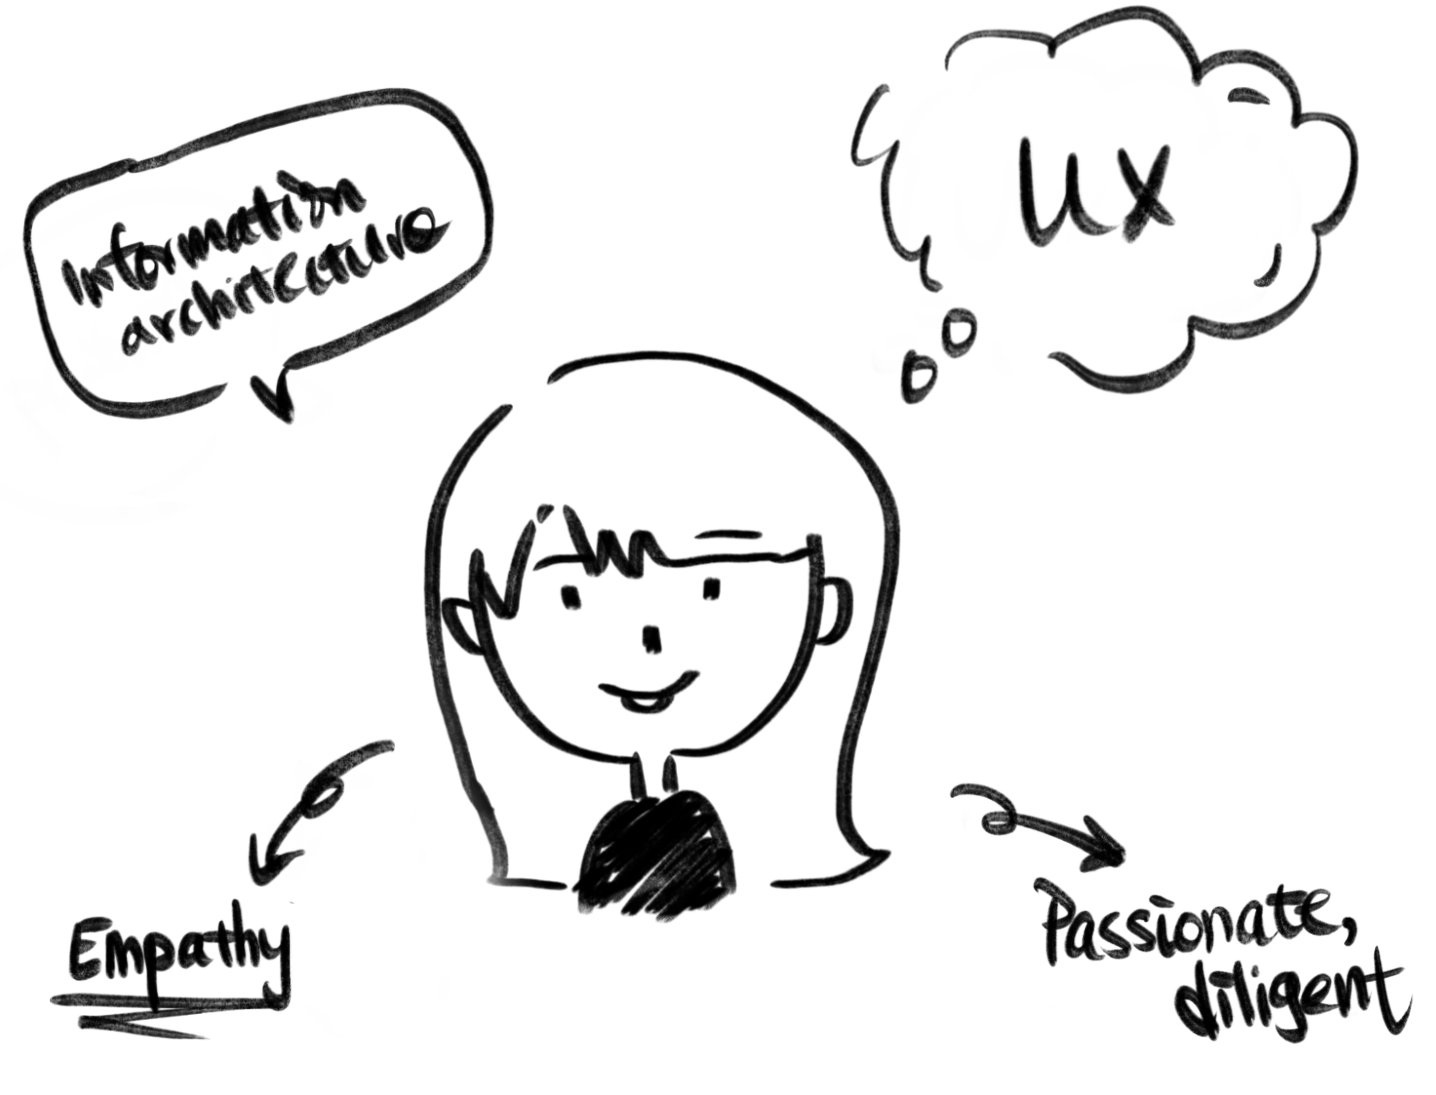 Information
architecture
UX
Empathy
Passionate,
diligent